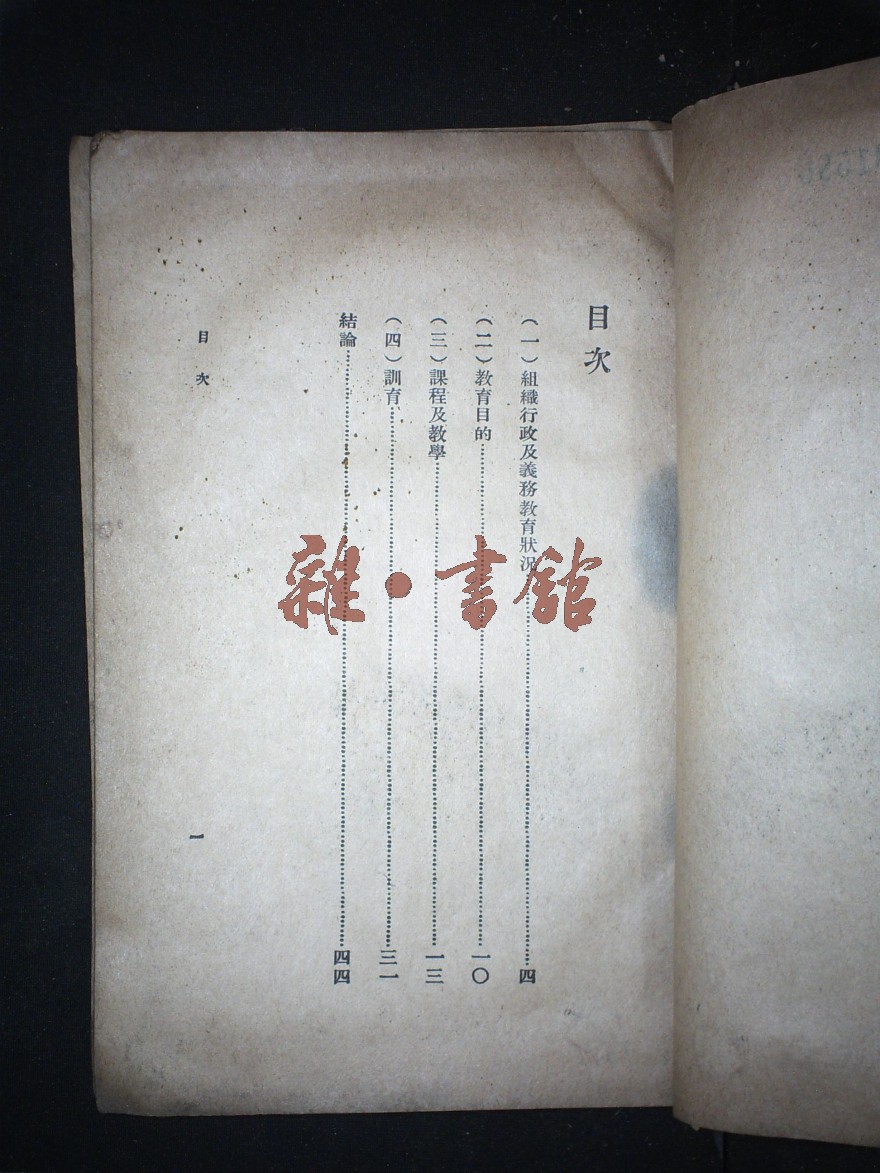 目次
(一)組織行政及義務教育狀況……四
(二)教育目的……一〇
(三)課程及教學……一三
(四)訓育……三一
結論……四四
目次
一
雜·書館